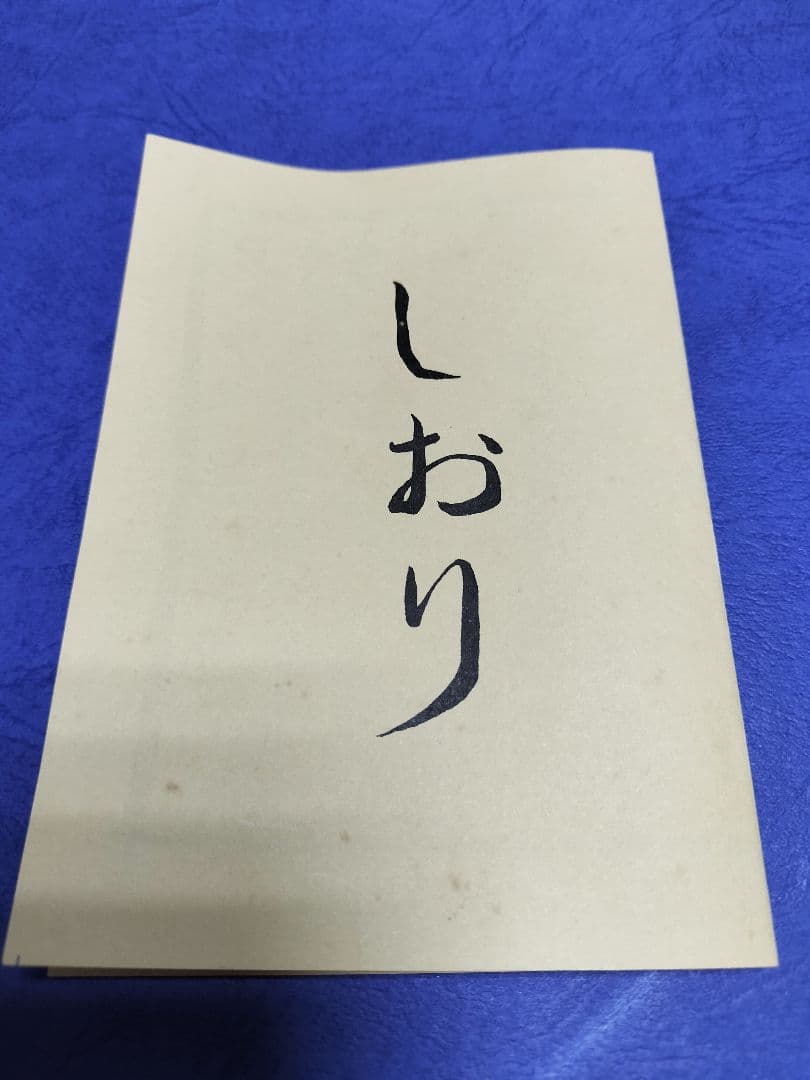 しおり